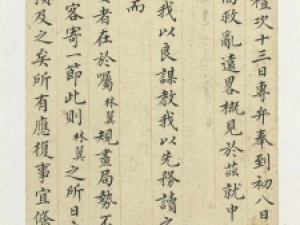 禮次十三日專弁奉到初八日
高救亂遠略概見於茲就中
我以良謀教我以先務讀之
而
者在於囑林翼規畫局勢不
客寄一節此則林翼之所日
須及之矣所有應復事宜條